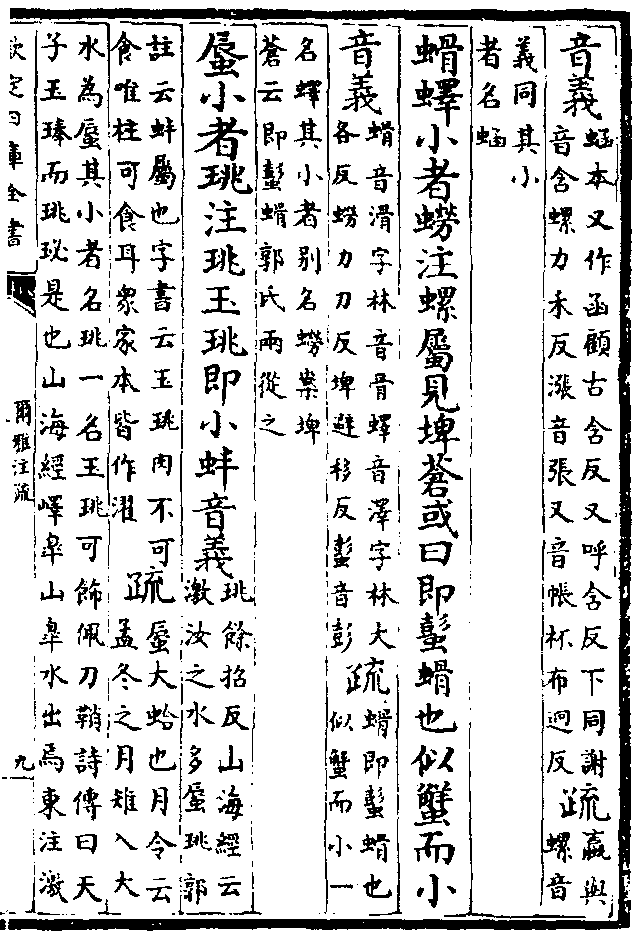 音義
蜬本又作函顧古含反又呼含反下同謝
音含螺力禾反漲音張又音帳杯布迥反
疏
蠃與
螺音
義同其小
者名蜬
螖蠌小者蟧注螺屬見埤蒼或曰即蟚螖也似蟹而小
音義
螖音滑字林音骨蠌音澤字林大
各反蟧力刀反埤避移反蟚音彭
疏
螖即蟚螖也
似蟹而小一
名蠌其小者别名蟧案埤
蒼云即蟚螖郭氏兩從之
蜃小者珧注珧玉珧即小蚌音義
珧餘招反山海經云
激汝之水多蜃珧郭
註云蚌屬也字書云玉珧肉不可
食唯柱可食耳衆家本皆作濯
疏
蜃大蛤也月令云
孟冬之月雉入大
水為蜃其小者名珧一名玉珧可飾佩刀鞘詩傳曰天
子玉瑧而珧珌是也山海經嶧皐山皐水出焉東注激
欽定四庫全書
爾雅注疏
九